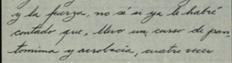 y la fuerza, no sé si ya le habré
contado que, llevo un curso de pan-
tomima y acrobacia, cuatro veces